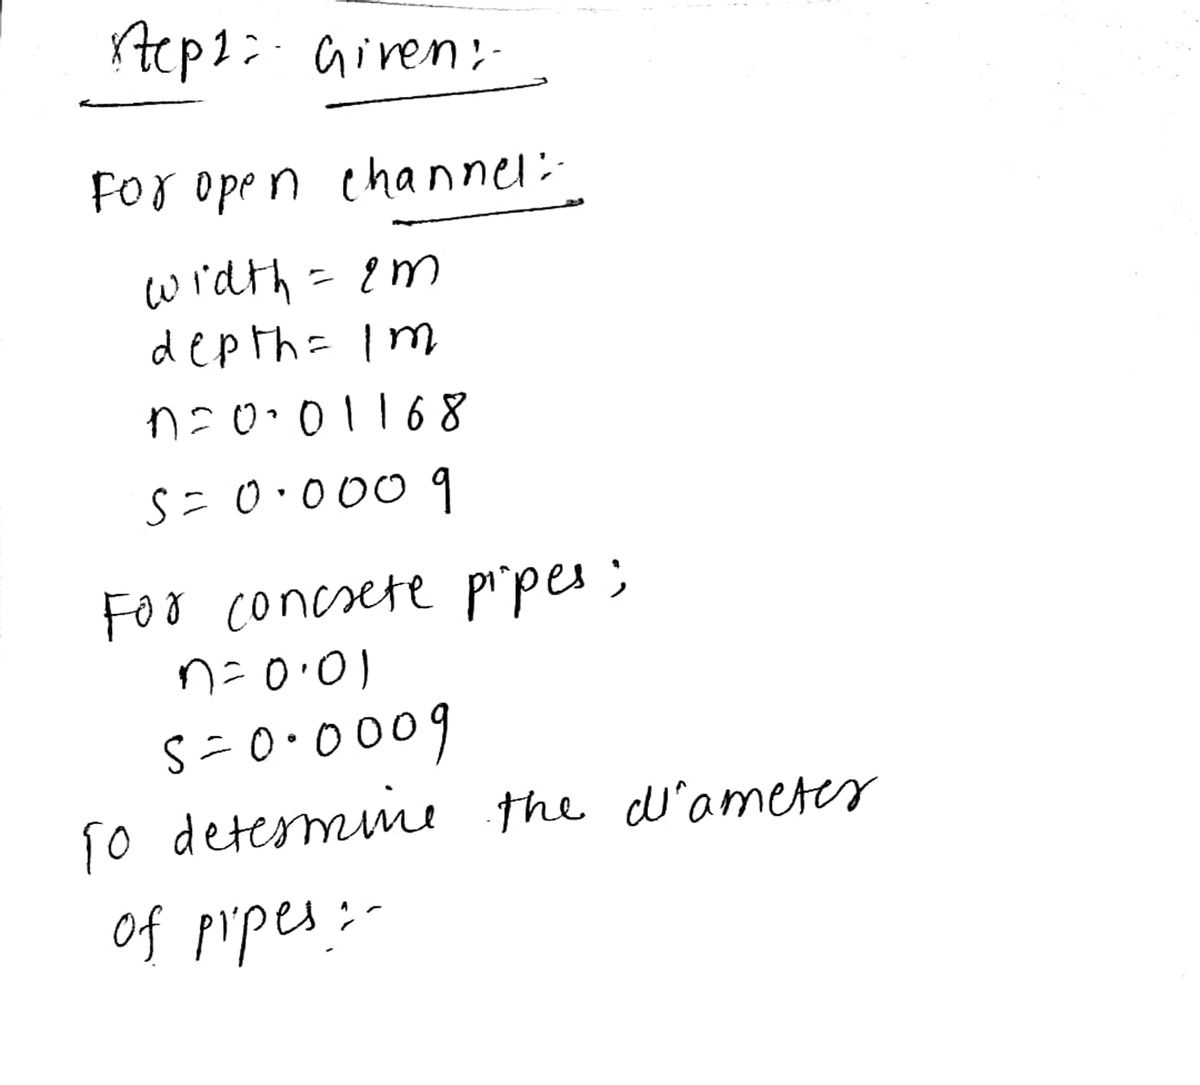 Step1:- Given:-
For open channel:-
width = 2m
depth = 1m
n=0.01168
S= 0.0009
For concrete pipes;
n=0.01
S=0.0009
To determine the diameter
of pipes:-